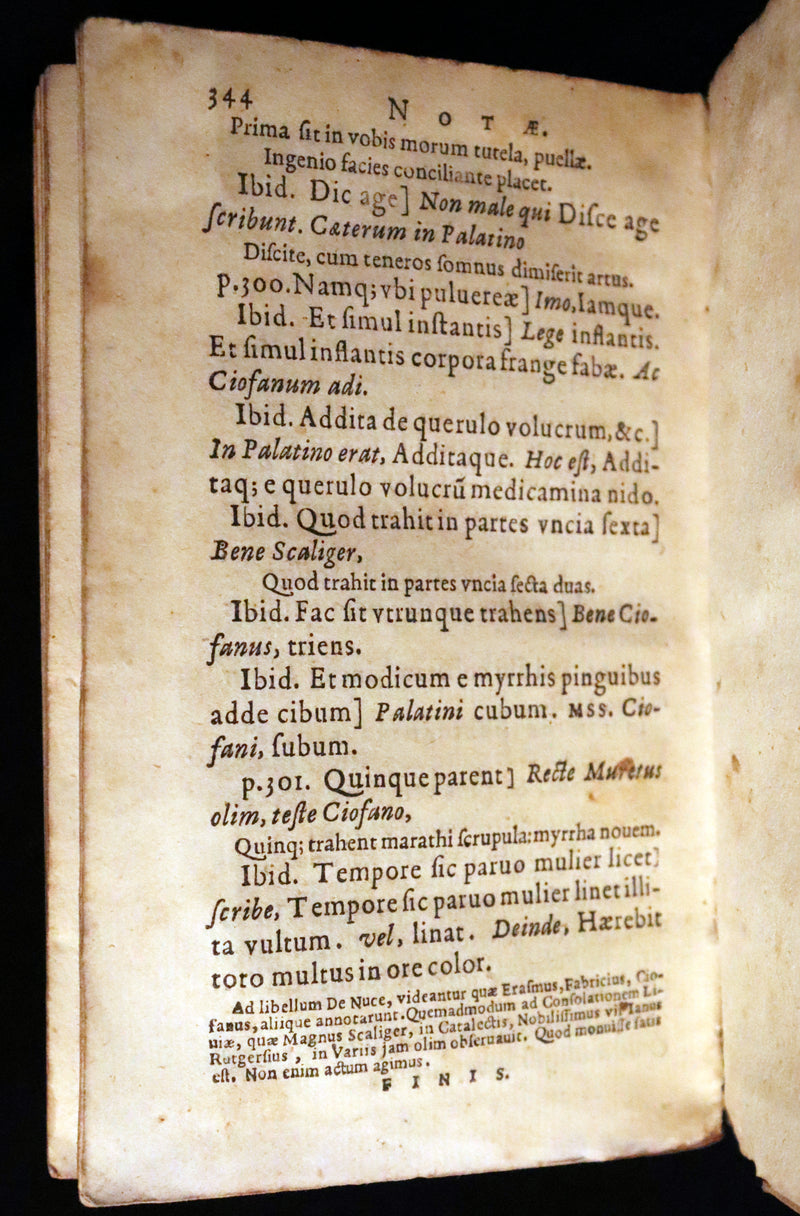 344
NOTÆ.
Prima ſit in vobis morum tutela, puellæ.
Ingenio facies conciliante placet.
Ibid. Dic age] Non male qui Diſce age
ſcribunt. Cæterum in Palatino
Diſcite, cum teneros ſomnus dimiſerit artus.
p.300. Namq; vbi puluereæ] Imo, Iamque.
Ibid. Et ſimul inſtantis] Lege inflantis.
Et ſimul inflantis corpora frange fabæ. Ac
Ciofanum adi.
Ibid. Addita de querulo volucrum, &c.]
In Palatino erat, Additaque. Hoc eſt, Addi-
taq; e querulo volucrū medicamina nido.
Ibid. Quod trahit in partes vncia ſexta]
Bene Scaliger,
Quod trahit in partes vncia ſecta duas.
Ibid. Fac ſit vtrunque trahens] Bene Cio-
fanus, triens.
Ibid. Et modicum e myrrhis pinguibus
adde cibum] Palatini cubum. MSS. Cio-
fani, ſubum.
p.301. Quinque parent] Recte Muretus
olim, teſte Ciofano,
Quinq; trahent marathi ſcrupula: myrrha nouem.
Ibid. Tempore ſic paruo mulier licet]
ſcribe, Tempore ſic paruo mulier linet illi-
ta vultum. vel, linat. Deinde, Hærebit
toto multus in ore color.
Ad libellum De Nuce, videantur quæ Eraſmus, Fabricius, Cio-
fanus, aliique annotarunt. Quemadmodum ad Conſolationem Li-
uiæ, quæ Magnus Scaliger, in Catalectis, Nobiliſſimus
Rutgerſius, in Variis jam olim obſeruauit. Quod monuiſſe ſatis
eſt. Non enim actum agimus.
FINIS.